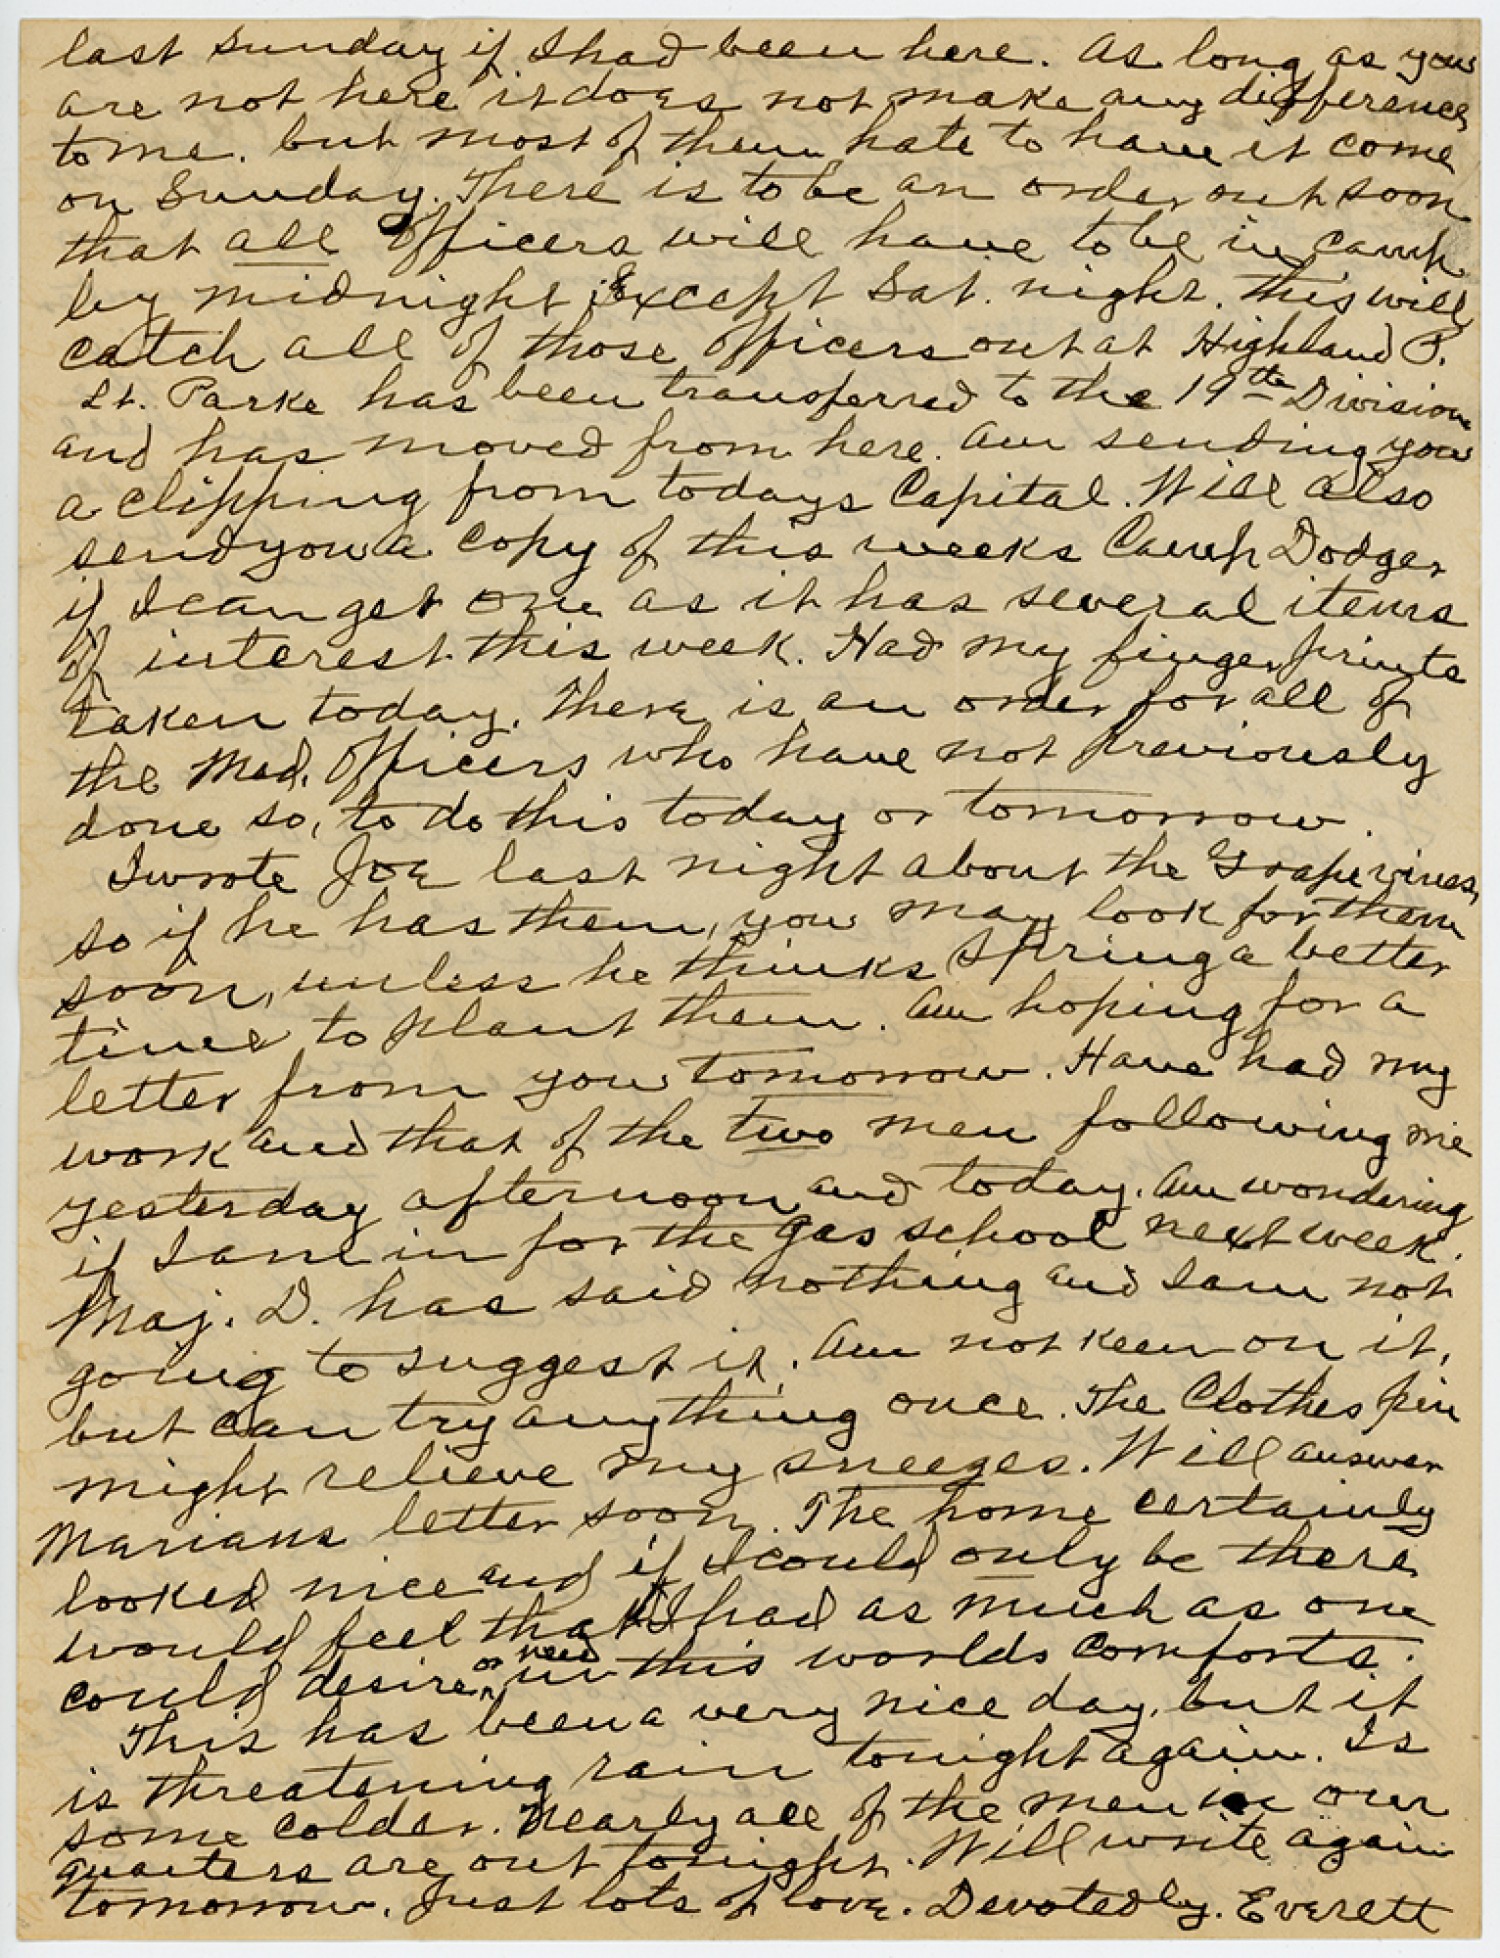 last Sunday if I had been here. As long as you
are not here it does not make any difference
to me. but most of them hate to have it come
on Sunday. There is to be an order out soon
that all Officers will have to be in camp
by midnight Except Sat. night. this will
catch all of those Officers out at Highland P.
Lt. Parke has been transferred to the 19th Division
and has moved from here. Am sending you
a clipping from todays Capital. Will also
send you a copy of this weeks Camp Dodger
if I can get one as it has several items
of interest this week. Had my finger prints
taken today. There is an order for all of
the Med. Officers who have not previously
done so, to do this today or tomorrow.
I wrote Joe last night about the Grape vines,
so if he has them, you may look for them
soon, unless he thinks Spring a better
time to plant them. Am hoping for a
letter from you tomorrow. Have had my
work and that of the two men following me
yesterday afternoon and today. Am wondering
if I am in for the gas school next week.
Maj. D. has said nothing and I am not
going to suggest it. Am not keen on it,
but can try anything once. The Clothes pin
might relieve my sneezes. Will answer
Marians letter soon. The home certainly
looked nice and if I could only be there
would feel that I had as much as one
could desire or need in this worlds comforts.
This has been a very nice day, but it
is threatening rain tonight again. Is
some colder. Nearly all of the men in our
quarters are out tonight. Will write again
tomorrow. Just lots of love. Devotedly. Everett